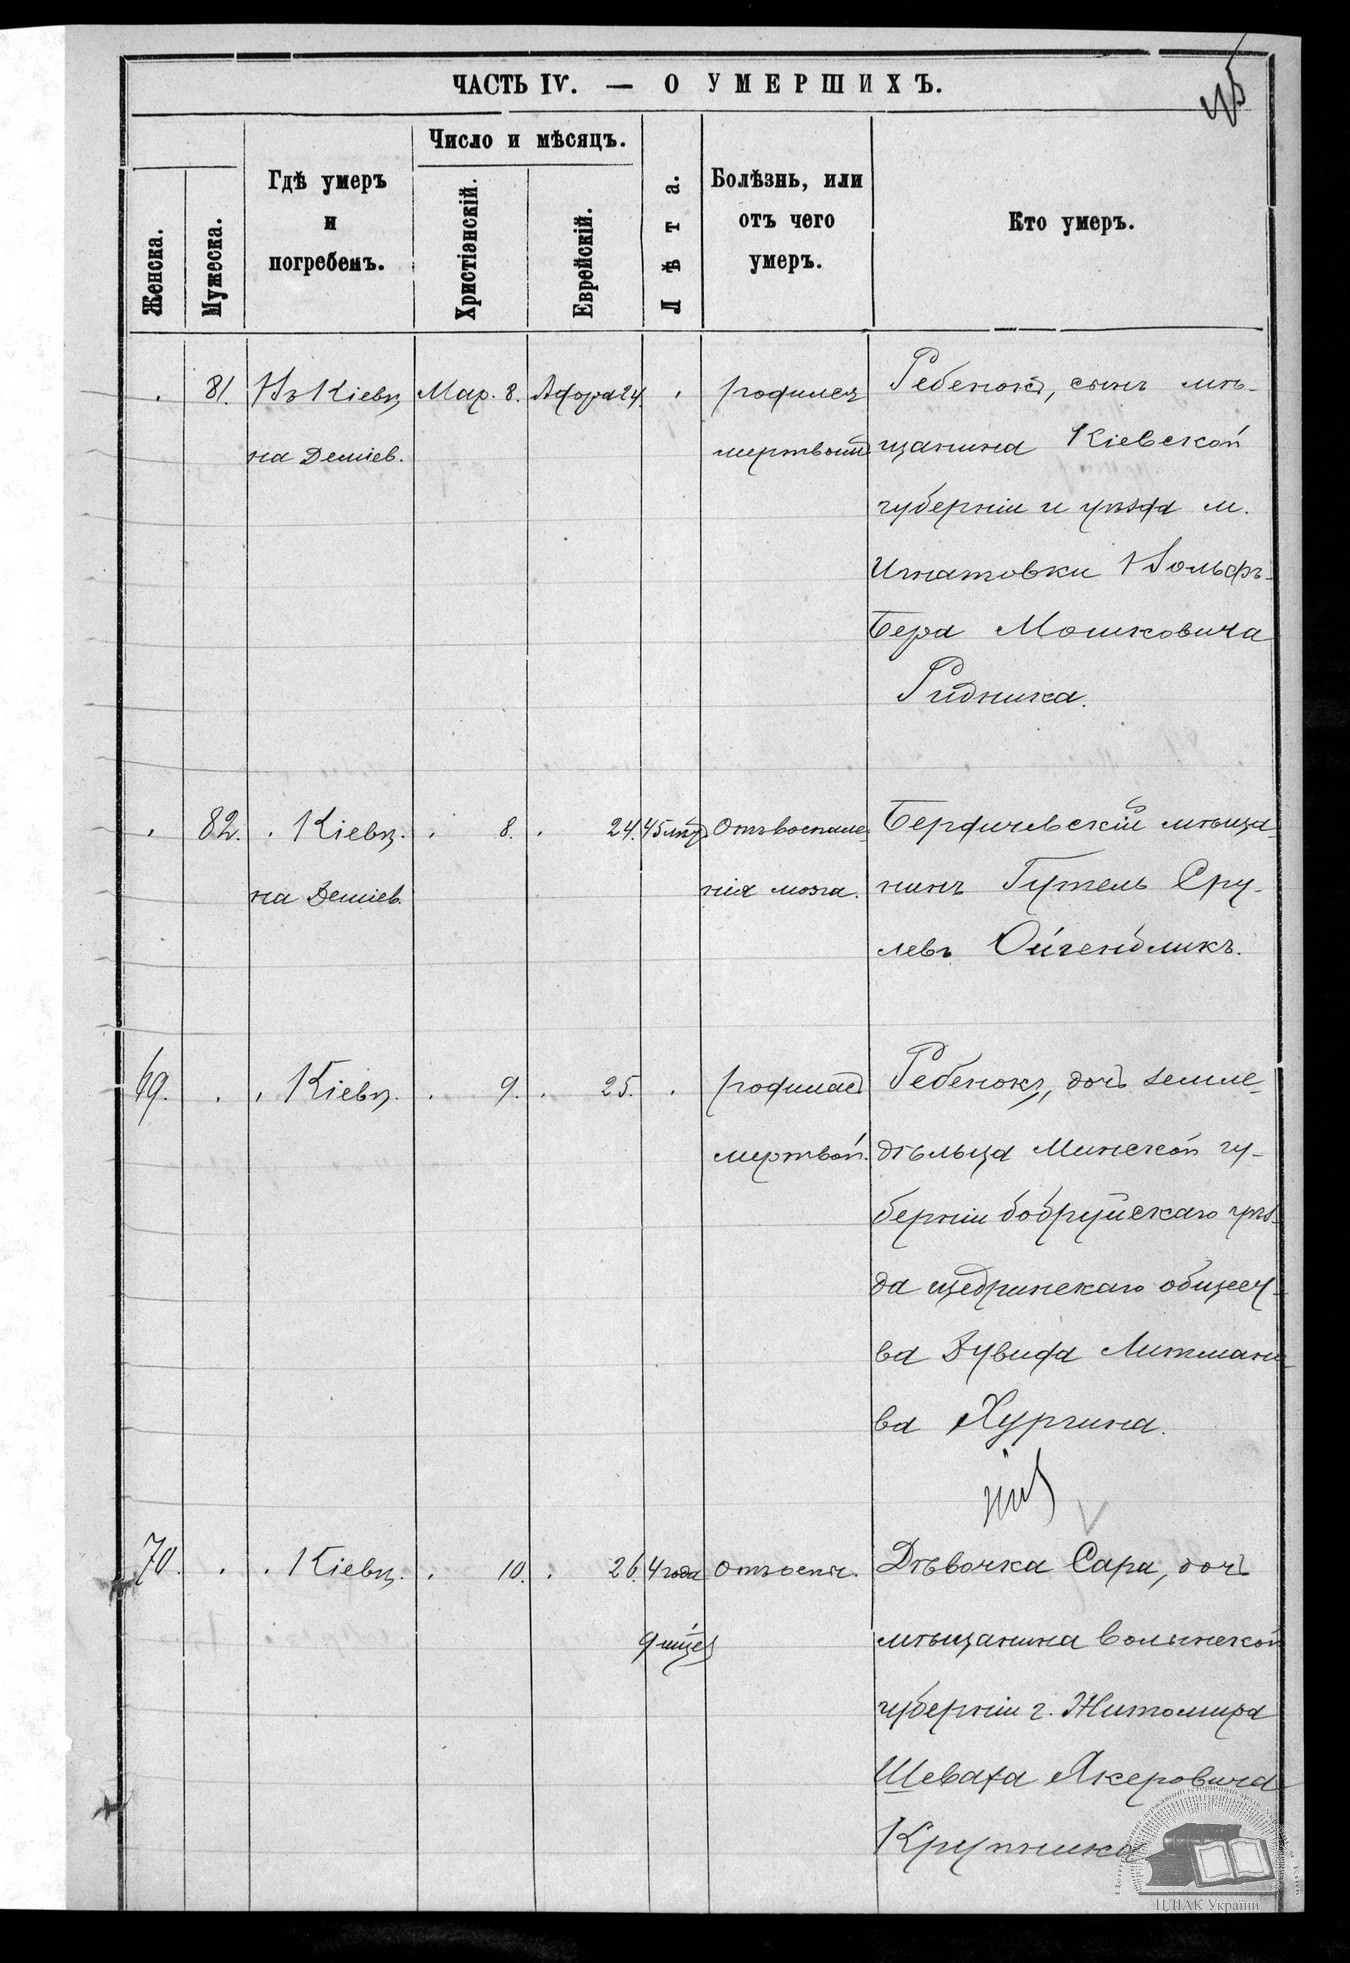 ЧАСТЬ IV. — О УМЕРШИХЪ.
45
Женска.
Мужеска.
Гдѣ умеръ
и
погребенъ.
Число и мѣсяцъ.
Христіанскій.
Еврейскій.
Лѣта.
Болѣзнь, или
отъ чего
умеръ.
Кто умеръ.
81. Въ Кіевѣ Мар. 8. Адора 24. родился Ребенокъ, сынъ мѣ-
на Деміев. мертвый щанина Кіевской
губерніи и уѣзда м.
Игнатовки Вольфъ-
Бера Мошковича
Ридника.
82. Кіевѣ. 8. 24. 45 лѣтъ Отъ воспале- Бердичевскій мѣща-
на Деміев. нія мозга. нинъ Гутель Сру-
левъ Ойгенбликъ.
69. Кіевѣ. 9. 25. родилась Ребенокъ, дочь земле-
мертвой. дѣльца Минской гу-
берніи бобруйскаго уѣз-
да щедринскаго общест-
ва Дувида Литмано-
ва Хургина.
70. Кіевѣ. 10. 26. 4 года Отъ оспы. Дѣвочка Сара, дочь
9 мѣсц мѣщанина Волынской
губерніи г. Житомира
Шеваха Якеровича
Крупника
ЦДІАК України